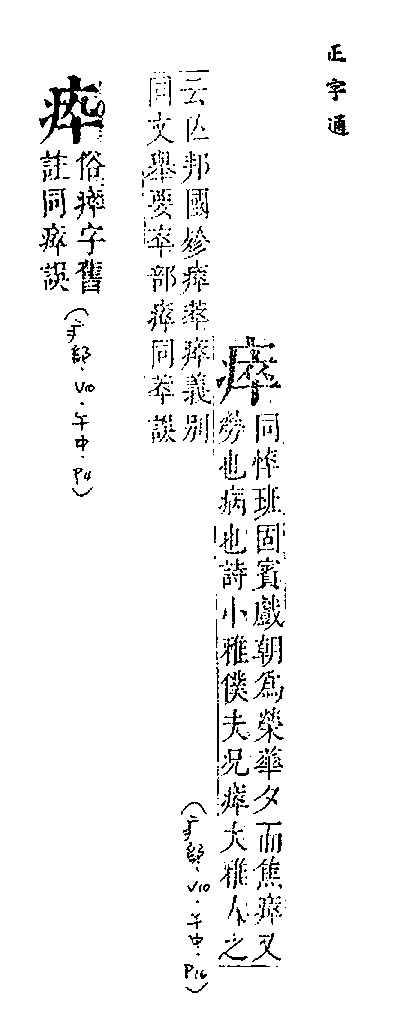 正字通
瘁
同悴班固賓戲朝爲榮華夕而焦瘁又
勞也病也詩小雅僕夫况瘁大雅人之
云亡邦國殄瘁萃瘁義别
同文舉要卒部瘁同萃誤
(疒部.V10.午中.P16)
俗瘁字舊
註同瘁誤
(疒部.V10.午中.P4)